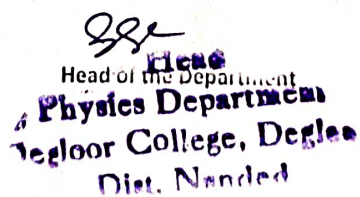 Head
Head of the Department
Physics Department
Degloor College, Degloor
Dist. Nanded